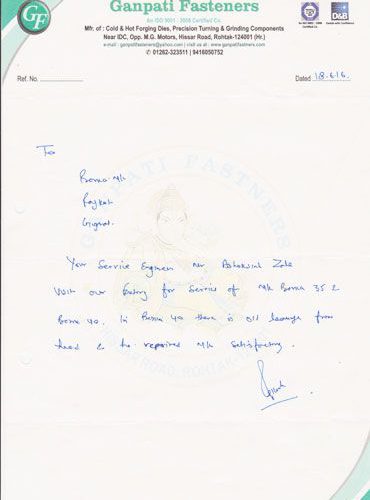 GF
Ganpati Fasteners
An ISO 9001 : 2008 Certified Co.
Mfr. of : Cold & Hot Forging Dies, Precision Turning & Grinding Components
Near IDC, Opp. M.G. Motors, Hissar Road, Rohtak-124001 (Hr.)
e-mail : ganpatifasteners@yahoo.com | visit us at : www.ganpatifasteners.com
✆ 01262-323511 | 9416050752
D&B
Ref. No.
Dated 18.6.16.
To
Boma M/c
Rajkot
Gujrat.
Your Service Engineer Mr Ashokvial
Visit our for Service of M/c Boma 35 &
Boma 40. In Boma 40 there is oil leakage from
head & he repaired M/c Satisfactory.
GANPATI FASTENERS
ROAD, ROHTAK